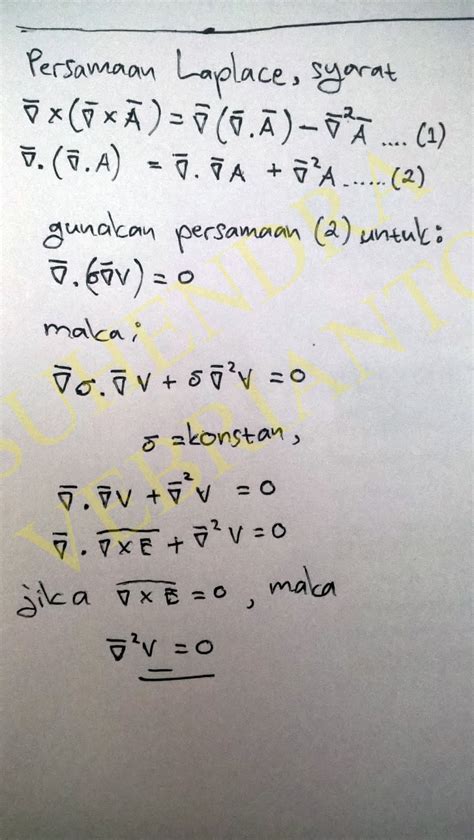 Persamaan Laplace, syarat
∇̄×(∇̄×Ā) = ∇̄(∇̄.Ā) − ∇̄²Ā .... (1)
∇̄.(∇̄.A) = ∇̄.∇̄A + ∇̄²A ...... (2)
gunakan persamaan (2) untuk:
∇̄.(σ∇̄V) = 0
maka;
∇̄σ.∇̄V + σ∇̄²V = 0
σ = konstan,
∇̄.∇̄V + ∇̄²V = 0
∇̄. \overline{∇×E} + ∇̄²V = 0
jika \overline{∇×E} = 0, maka
∇̄²V = 0
SUHENDRA
VEBRIANTO